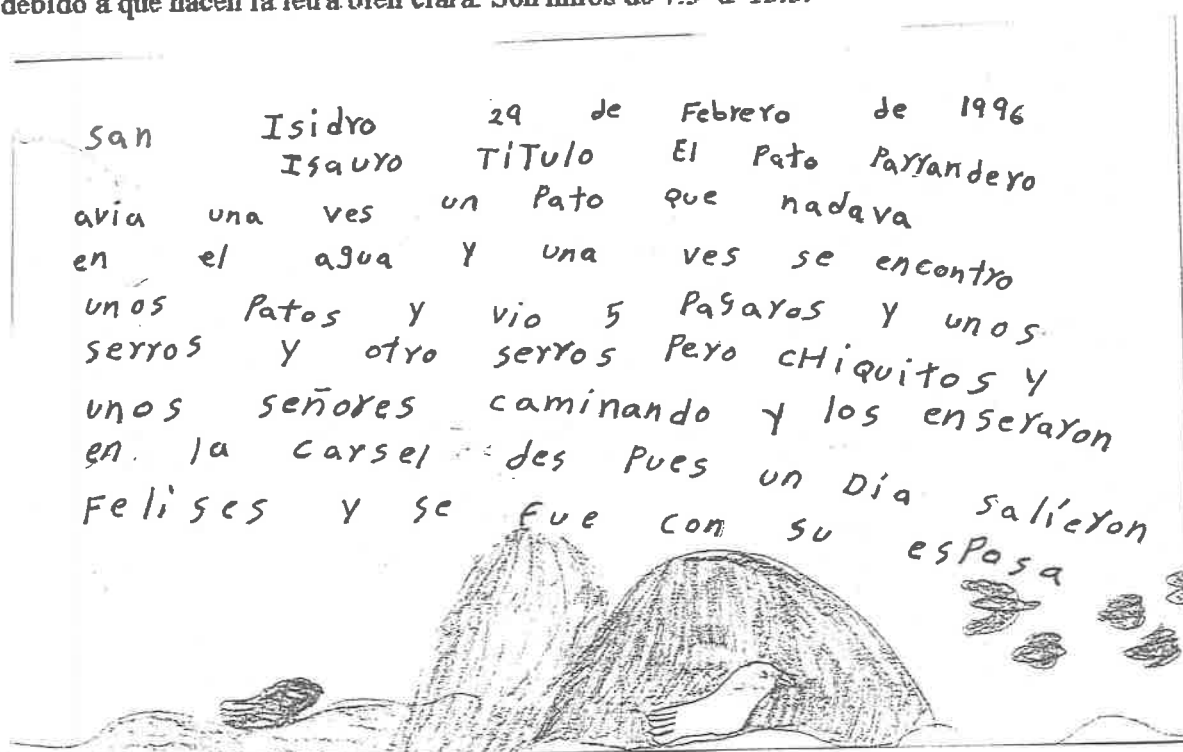 debido a que hacen la letra bien clara. Son niños de
San Isidro 29 de Febrero de 1996
Isauro TíTulo El Pato Parrandero
avia una ves un Pato que nadava
en el agua y una ves se encontro
unos Patos y vio 5 Pagaros y unos
serros y otro serros Pero cHiquitos y
unos señores caminando y los enseraron
en la Carsel des Pues un Día salieron
Felises y se Fue con su esPosa